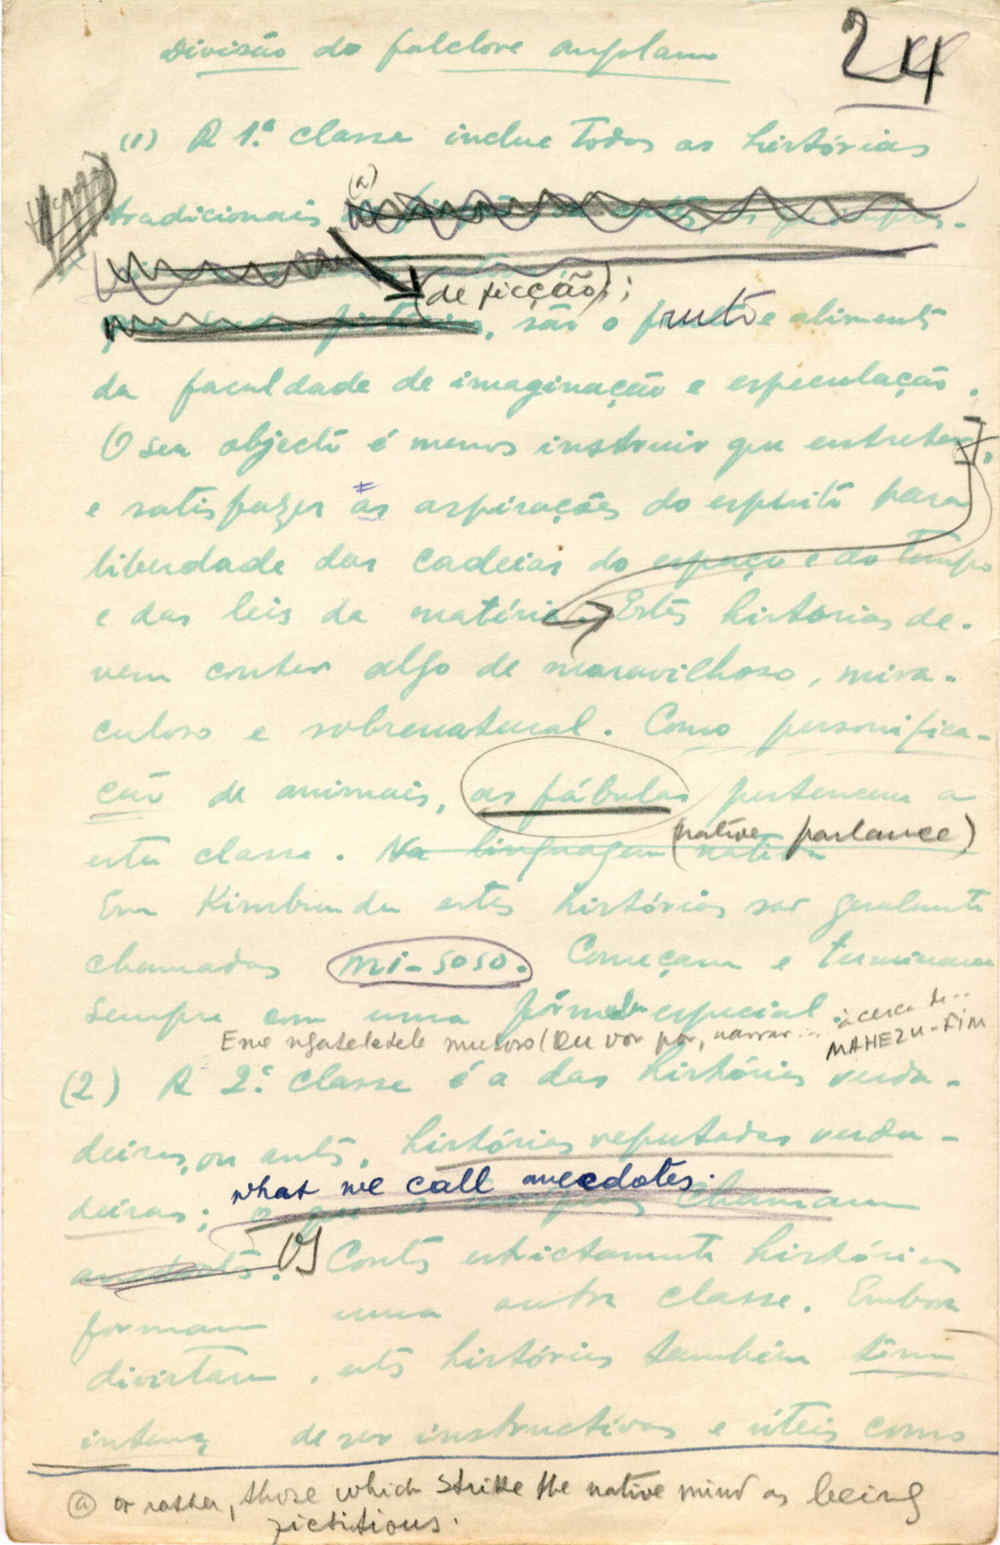 Divisão do folclore angolano
24
(1) A 1.ª classe inclue todas as histórias
(a)
tradicionais
(de ficção);
são o fruto e alimento
da faculdade de imaginação e especulação.
O seu objecto é menos instruir que entreter,
e satisfazer as aspirações do espírito para
liberdade das cadeias do espaço e do tempo
e das leis da matéria. Estas histórias de-
vem conter algo de maravilhoso, mira-
culoso e sobrenatural. Como personifica-
ção de animais, as fábulas pertencem a
esta classe. Na linguagem nativa
(native parlance)
Em Kimbundu estas histórias são geralmente
chamadas mi-soso. Começam e terminam
sempre com uma fórmula especial.
Eme ngateletele musoso (Eu vou pôr, narrar... àcerca de..
MAHEZU - FIM
(2) A 2.ª classe é a das histórias verda-
deiras, ou antes, histórias reputadas verda-
what we call anecdotes.
deiras; o que chamam
Os Contos estrictamente histórias
formam uma outra classe. Embora
divirtam, estas histórias também têm
de ser instructivas e úteis como
(a) or rather, those which strike the native mind as being
fictitious.